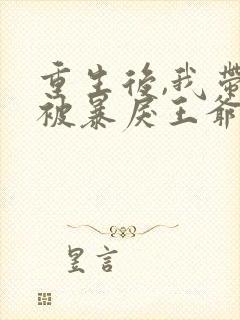 重生後,我帶
被暴戾王爺
昱言